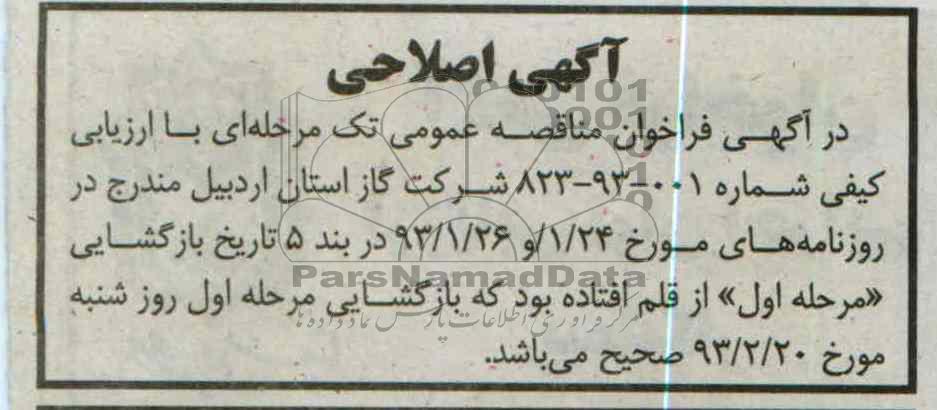 آگهی اصلاحی
در آگهـی فراخوان مناقصـه عمومی تک مرحله‌ای بـا ارزیابی
کیفی شـماره ۰۰۱-۹۳-۸۲۳ شـرکت گاز استان اردبیل مندرج در
روزنامه‌هـای مـورخ ۱/۲۴/و ۹۳/۱/۲۶ در بند ۵ تاریخ بازگشـایی
ParsNamadData
«مرحله اول» از قلم افتاده بود که بازگشـایی مرحله اول روز شنبه
مرکز فرآوری اطلاعات پارس نماد داده ها
مورخ ۹۳/۲/۲۰ صحیح می‌باشد.